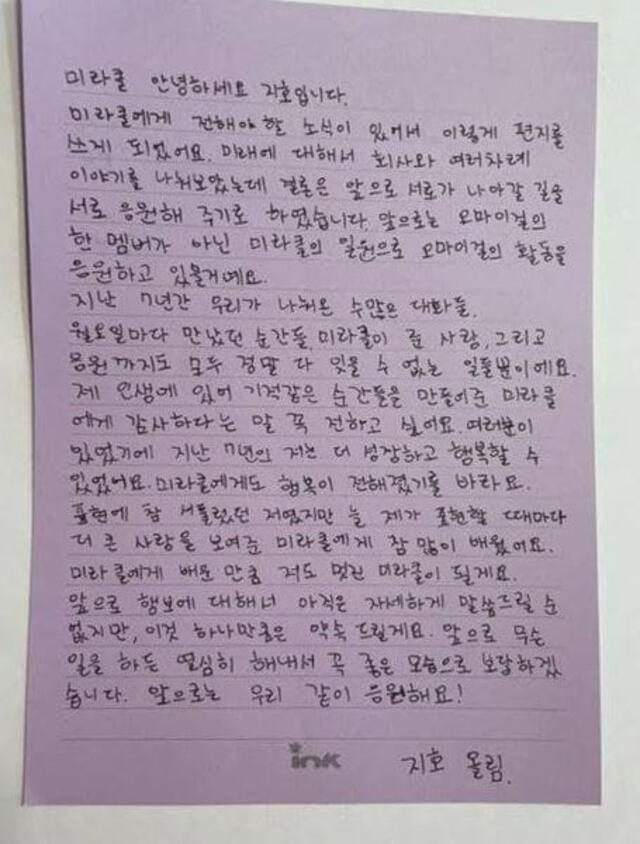 미라클 안녕하세요 지호입니다.
미라클에게 전해야할 소식이 있어서 이렇게 편지를
쓰게 되었어요. 미래에 대해서 회사와 여러차례
이야기를 나눠보았는데 결론은 앞으로 서로가 나아갈 길을
서로 응원해 주기로 하였습니다. 앞으로는 오마이걸의
한 멤버가 아닌 미라클의 일원으로 오마이걸의 활동을
응원하고 있을거예요.
지난 7년간 우리가 나눠온 수많은 대화들,
월요일마다 만났던 순간들, 미라클이 준 사랑, 그리고
응원까지도 모두 정말 다 잊을 수 없는 일들뿐이에요.
제 인생에 있어 기적같은 순간들을 만들어준 미라클
에게 감사하다는 말 꼭 전하고 싶어요. 여러분이
있었기에 지난 7년의 저는 더 성장하고 행복할 수
있었어요. 미라클에게도 행복이 전해졌기를 바라요.
표현에 참 서툴렀던 저였지만 늘 제가 표현할 때마다
더 큰 사랑을 보여준 미라클에게 참 많이 배웠어요.
미라클에게 배운 만큼 저도 멋진 미라클이 될게요.
앞으로 행보에 대해너 아직은 자세하게 말씀드릴 순
없지만, 이것 하나만큼은 약속 드릴게요. 앞으로 무슨
일을 하든 열심히 해내서 꼭 좋은 모습으로 보답하겠
습니다. 앞으로는 우리 같이 응원해요!
ink
지호 올림.